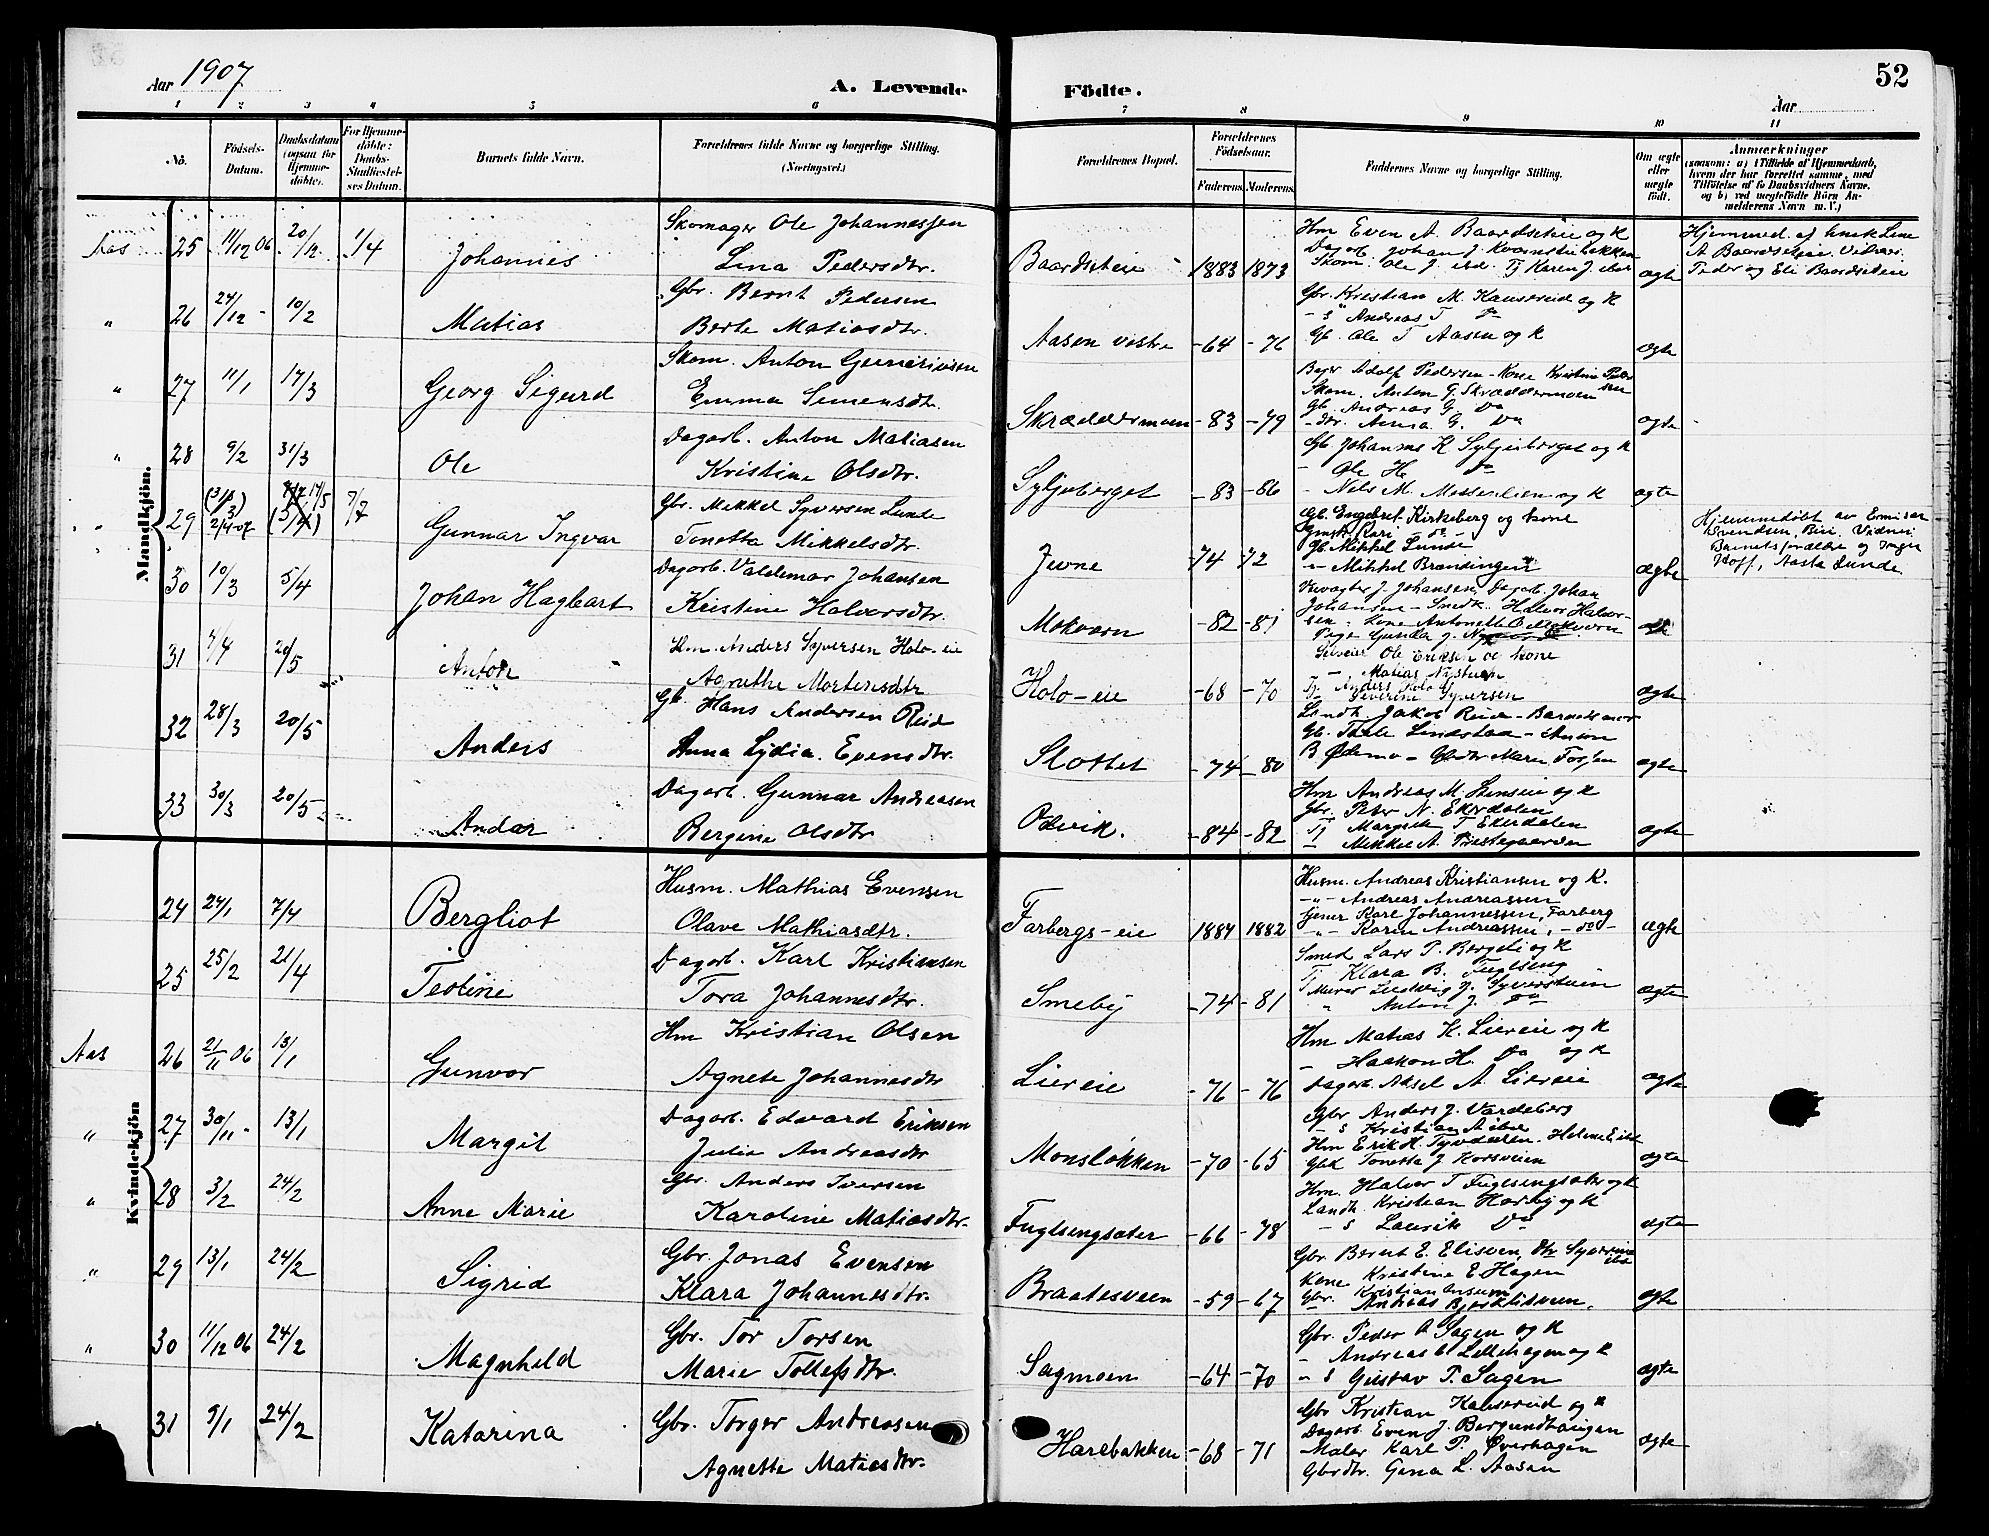 Aar 1907
A. Levende Födte.
52
Aar
1 2 3 4 5 6 7 8 9 10 11
No.
Födsels-Datum.
Daabsdatum (ogsaa for Hjemme-döbte).
For Hjemme-döbte: Daabs-Stadfæstel-ses Datum.
Barnets fulde Navn.
Forældrenes fulde Navne og borgerlige Stilling. (Næringsvei.)
Forældrenes Bopæl.
Forældrenes Födselsaar.
Faderens. Moderens.
Faddernes Navne og borgerlige Stilling.
Om ægte eller uægte födt.
Anmærkninger
(saasom: a) i Tilfælde af Hjemmedaab, hvem der har forrettet samme, med Tilföielse af to Daabsvidners Navne. og b) ved uægtefödte Börn An-melderens Navn m. V.)
Mandkjön.
Aas 25 11/12 06 20/12 1/4 Johannes
Skomager Ole Johannessen
Lina Pedersdtr.
Baardseteie 1883 1873
Hm Even A Baardseteie og K
Dagarb Johan J Kvernstulykken
Skom. Ole J. ibd. Tj Karen J. ibd
ægte
Hjemmed. af
A Baardseteie. Vidner:
Peder og Eli Baardseteie
" 26 24/12 - 10/2 Matias
Gbr. Bernt Pedersen
Berte Matiasdtr.
Aasen vestre -64 -76
Gbr. Kristian M. Hansereid og K
- s Andreas T Do
Gb. Ole T Aasen og K
ægte
" 27 11/1 17/3 Georg Sigurd
Skom. Anton Guneriusen
Emma Simensdtr.
Skræddermoen -83 -79
Adolf Pedersen - Kone Kristine Peder
sen
Skom. Anton G. Skræddermoen
Gb. Andreas G. Do
- dtr. Anna G. Do
ægte
" 28 9/2 31/3 Ole
Dagarb. Anton Matiasen
Kristine Olsdtr.
Syljuberget -83 -86
Gb Johannes K Syljuberget og K
- Ole H Do
- Nels M. Messenlien og K
ægte
" 29 2/4 07 17/5 7/7 Gunnar Ingvar
Gbr. Mikkel Syversen Lunde
Tonetta Mikkelsdtr.
Jevne -74 -72
Gb. Engebret Kirkeberg og kone
Kari do -
Gb Mikkel Lunde
- Mikkel Brændingen
ægte
Hjemmedøbt av
Svendsen, Biri. Vidner:
Barnets forældre og Inger
Hoff, Aasta Lunde
30 10/3 5/4 Johan Hagbart
Dagarb. Valdemar Johansen
Kristine Halvorsdtr.
Mokvern -82 -81
J. Johansen, Dagarb Johan
Johansen - Smedk. Halvor Halvor-
sen -
Pige Gunda J.
31 4/4 20/5 Anton
Hm. Anders Syversen Holo-eie
Agnethe Mortensdtr
Holo-eie -68 -70
Ole Eriksen og kone
- Matias Nystuen
Tj. Anders Holo
Severine Syversen
ægte
32 28/3 20/5 Anders
Gb. Hans Andersen Reid
Anna Lydia Evensdtr.
Slottet -74 -80
Landh. Jakob - Barnets mor
Gb.
B Ødemo -
ægte
33 30/3 20/5 Andor
Dagarb. Gunnar Andreasen
Bergine Olsdtr
Odvik. -84 -82
Hm Andreas M. og K
Gbr. Peter N. Ekerdalen
Tj Margrete T Ekerdalen
- Mikkel A. Prestegaarden
ægte
Kvindekjön
24 24/1 7/4 Bergliot
Husm. Mathias Evensen
Olave Mathiasdtr.
Farbergs-eie 1884 1882
Husm. Andreas Kristiansen og K.
-"- Andreas Andreassen
Tjener Karl Johannessen, Farberg
-"- Karen Andreassen, -do-
ægte
25 25/2 21/4 Teoline
Dagarb. Karl Kristiansen
Tora Johannesdtr.
Smeby -74 -81
Smed Lars P. Bergeli og K
Tj Klara B. Fuglseng
Murer Ludvig J. Syverstuen
" Anton J. Do
ægte
Aas 26 21/11 06 13/1 Gunvor
Hm Kristian Olsen
Agnete Johannesdtr
Liereie -76 -76
Hm Matias K. Liereie og K
- Haakon H. Do og K
Dagarb. Aksel A. Liereie
ægte
" 27 30/11 - 13/1 Margit
Dagarb. Edvard Eriksen
Julie Andreasdtr
Monsløkken -70 -65
Gbr Anders J. Vardeberg
- s Kristian A ibd
Hm Erik H. - Helene E ibd
Gbk Tonetta J Korsveien
ægte
" 28 3/2 24/2 Anne Marie
Gbr. Anders Iversen
Karoline Matiasdtr.
Fuglsengsæter -66 -78
Hm. Halvor T Fuglsengsæter og K
Landh. Kristian Horby og K
- s Laurik Do
ægte
" 29 13/1 24/2 Sigrid
Gbr. Jonas Evensen
Klara Johannesdtr.
Braatesveen -59 -67
Gbr. Bernt E. Elisveen, dtr Syverine
ibd
Kone Kristine E Hagen
Gbr. Kristian
- Andreas
ægte
" 30 11/12 06 24/2 Magnhild
Gbr. Tor Torsen
Marie Tollefsdtr.
Sagmoen -64 -70
Gbr. Peder A Sagen og K
- Andreas O Lillehagen og K
- s Gustav P. Sagen
ægte
31 9/1 24/2 Katarina
Gbr. Torger Andreasen
Agnette Matiasdtr.
Harebakken -68 -71
Gbr Kristian Hansereid og K
Dagarb. Even J. Bergundhaugen
Maler Karl P. Øverhagen
Gbrdtr. Gina L. Aasen
ægte